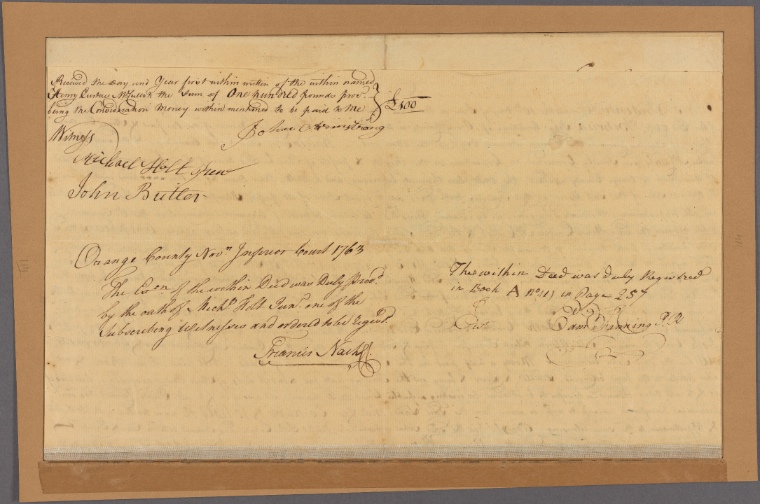 Received the day and Year first within written of the within named
Henry Eustace McCulloh the Sum of One hundred pounds proc
being the Consideration Money within mentioned to be paid to Me
£100
John Armstrong
Witness
Michael Holt
John Butler
Orange County Novr Inferior Court 1763
The Exon of the within Deed was Duly Prov'd
by the oath of Michl Holt Junr one of the
Subscribing Witnesses and ordered to be Regist.
Francis Nash
The within Deed was duly Registred
in Book A No (1) in Page 257